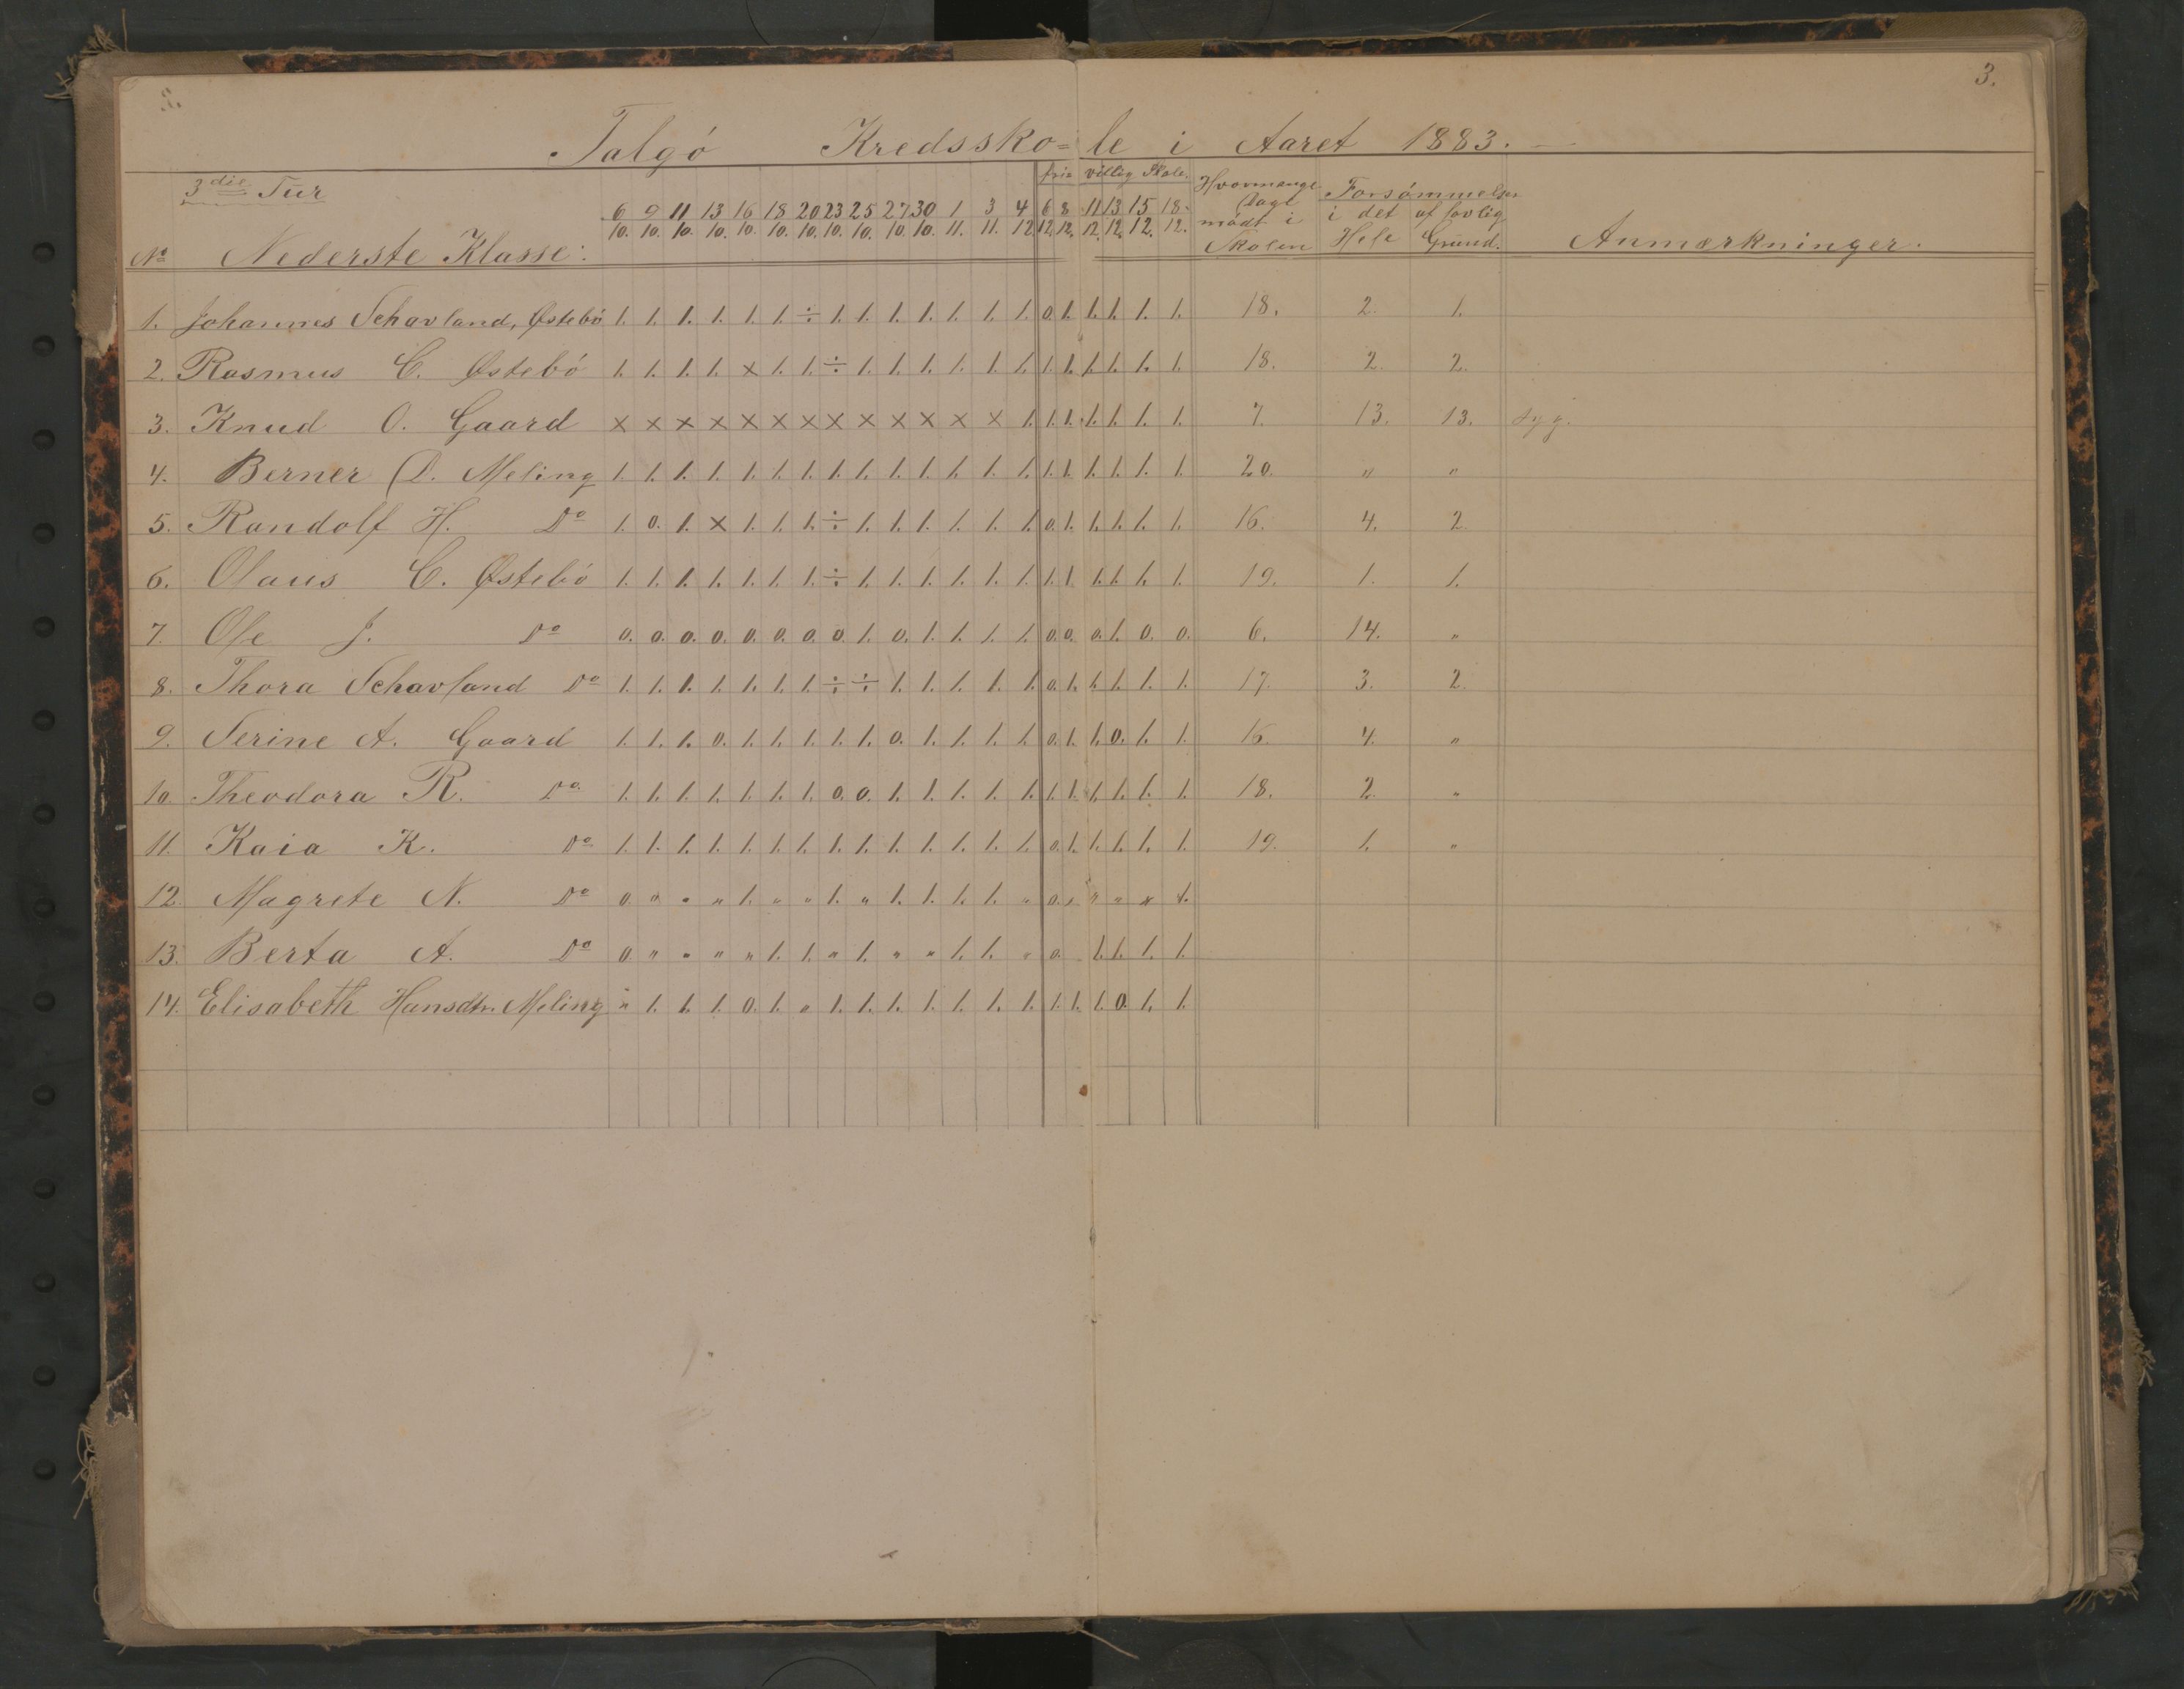 3.
Talgö Kredssko=le i Aaret 1883.—
3die Tur
frievillig Skole.
Hvormange Dage mödt i Skolen
Forsömmelser
i det Hele
af lovlig Grund.
6 9 11 13 16 18 20 23 25 27 30 1 3 4 6 8 11 13 15 18
10. 10. 10. 10. 10. 10. 10. 10. 10. 10. 10. 11. 11. 12 12 12. 12. 12. 12. 12.
No Nederste Klasse: Anmærkninger.
1. Johannes Schavland, Østebö 1. 1. 1. 1. 1. 1. ÷ 1. 1. 1. 1. 1. 1. 1. 0. 1. 1. 1. 1. 1. 18. 2. 1.
2. Rasmus C. Østebö 1. 1. 1. 1. × 1. 1. ÷ 1. 1. 1. 1. 1. 1. 1. 1. 1. 1. 1. 1. 18. 2. 2.
3. Knud O. Gaard × × × × × × × × × × × × × 1. 1. 1. 1. 1. 1. 1. 7. 13. 13. syg.
4. Berner D. Meling 1. 1. 1. 1. 1. 1. 1. 1. 1. 1. 1. 1. 1. 1. 1. 1. 1. 1. 1. 1. 20. " "
5. Randolf H. Do 1. 0. 1. × 1. 1. 1. ÷ 1. 1. 1. 1. 1. 1. 0. 1. 1. 1. 1. 1. 16. 4. 2.
6. Olaus C. Østebö 1. 1. 1. 1. 1. 1. 1. ÷ 1. 1. 1. 1. 1. 1. 1. 1. 1. 1. 1. 1. 19. 1. 1.
7. Ole J. Do 0. 0. 0. 0. 0. 0. 0. 0. 1. 0. 1. 1. 1. 1. 0. 0. 0. 1. 0. 0. 6. 14. "
8. Thora Schavland Do 1. 1. 1. 1. 1. 1. 1. ÷ ÷ 1. 1. 1. 1. 1. 0. 1. 1. 1. 1. 1. 17. 3. 2.
9. Serine A. Gaard 1. 1. 1. 0. 1. 1. 1. 1. 1. 0. 1. 1. 1. 1. 0. 1. 1. 0. 1. 1. 16. 4. "
10. Theodora R. Do 1. 1. 1. 1. 1. 1. 1. 0. 0. 1. 1. 1. 1. 1. 1. 1. 1. 1. 1. 1. 18. 2. "
11. Kaia K. Do 1. 1. 1. 1. 1. 1. 1. 1. 1. 1. 1. 1. 1. 1. 0. 1. 1. 1. 1. 1. 19. 1. "
12. Magrete N. Do 0. " " " 1. " " 1. " 1. 1. 1. 1. " 0. " " " " 1.
13. Berta A. Do 0. " " " " 1. 1. " 1. " " 1. 1. " 0. 1. 1. 1. 1.
14. Elisabeth Hansdtr. Meling " 1. 1. 1. 0. 1. " 1. 1. 1. 1. 1. 1. 1. 1. 1. 1. 0. 1. 1.